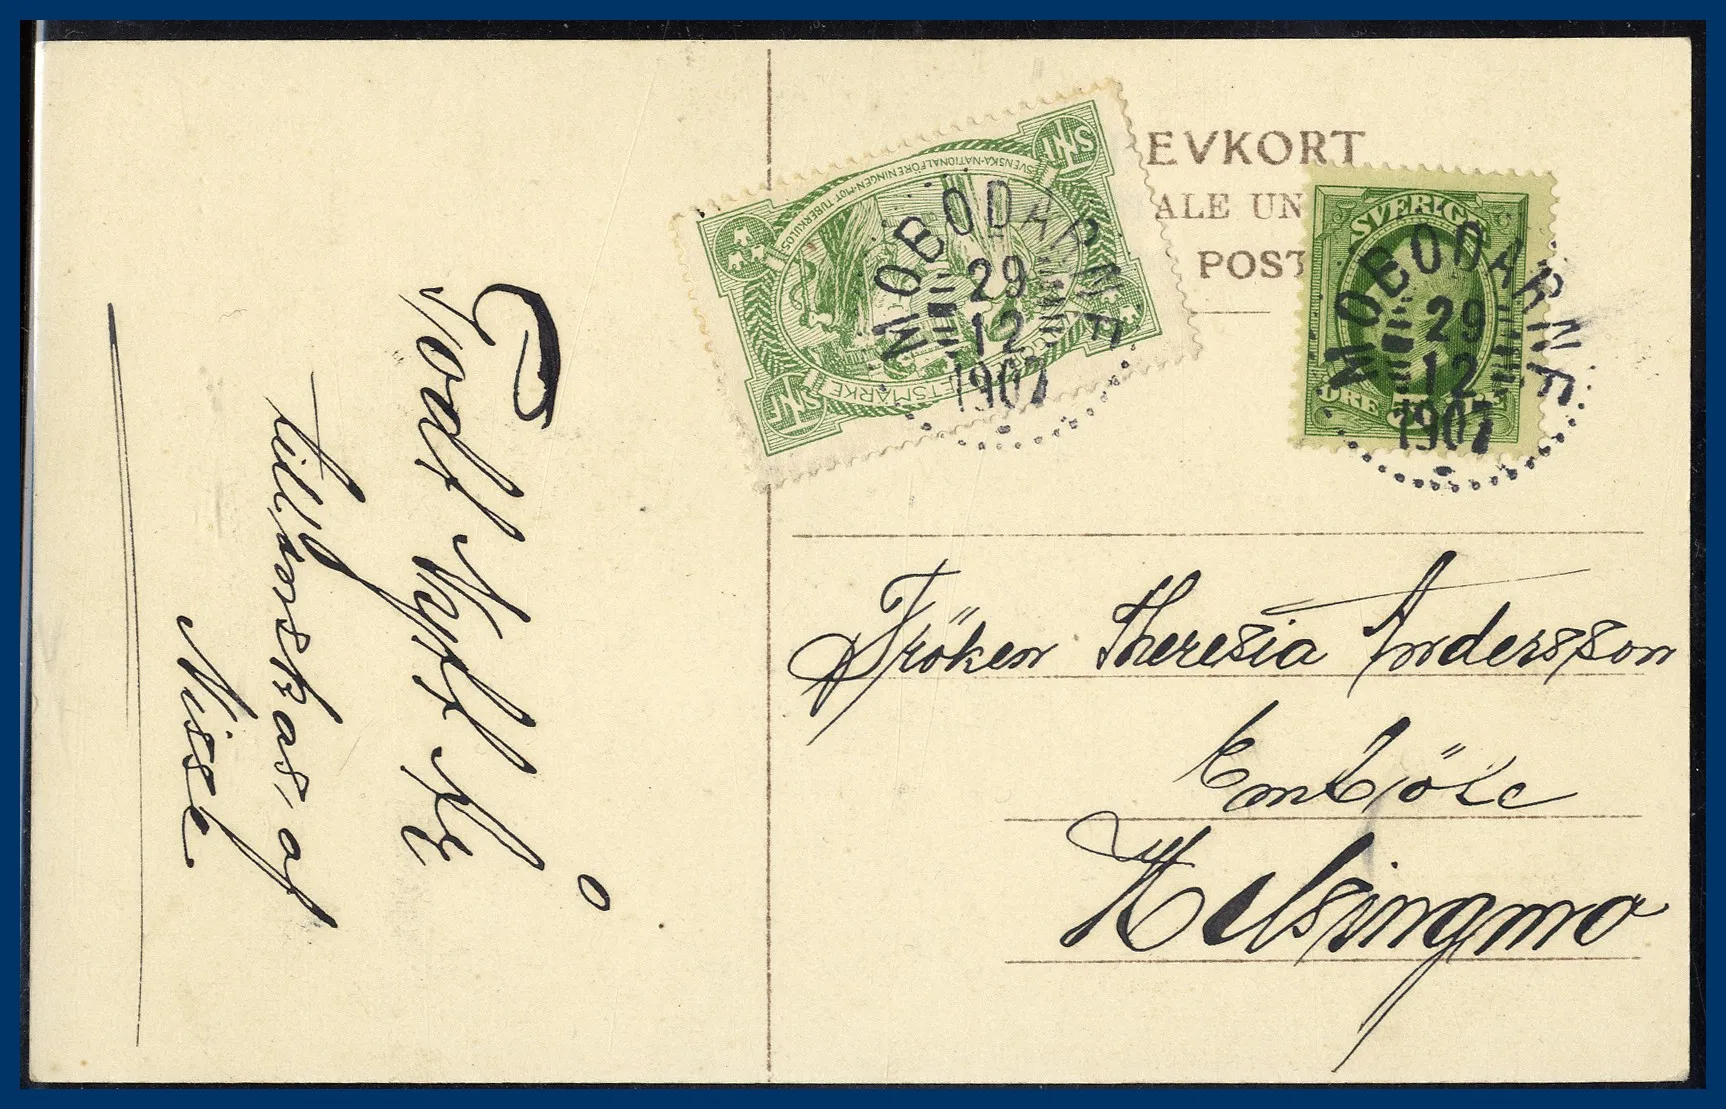 Godt Nytt År
tillönskas, af
Nisse
EVKORT
ALE UN
POST
SNF
SNF
SVENSKA-NATIONALFÖRENINGEN-MOT TUBERKULOS
ETSMÄRKE
MOBODARNE
29
12
1907
SVERIGE
ÖRE
MOBODARNE
29
12
1907
Fröken Theresia Andersson
Helsingmo